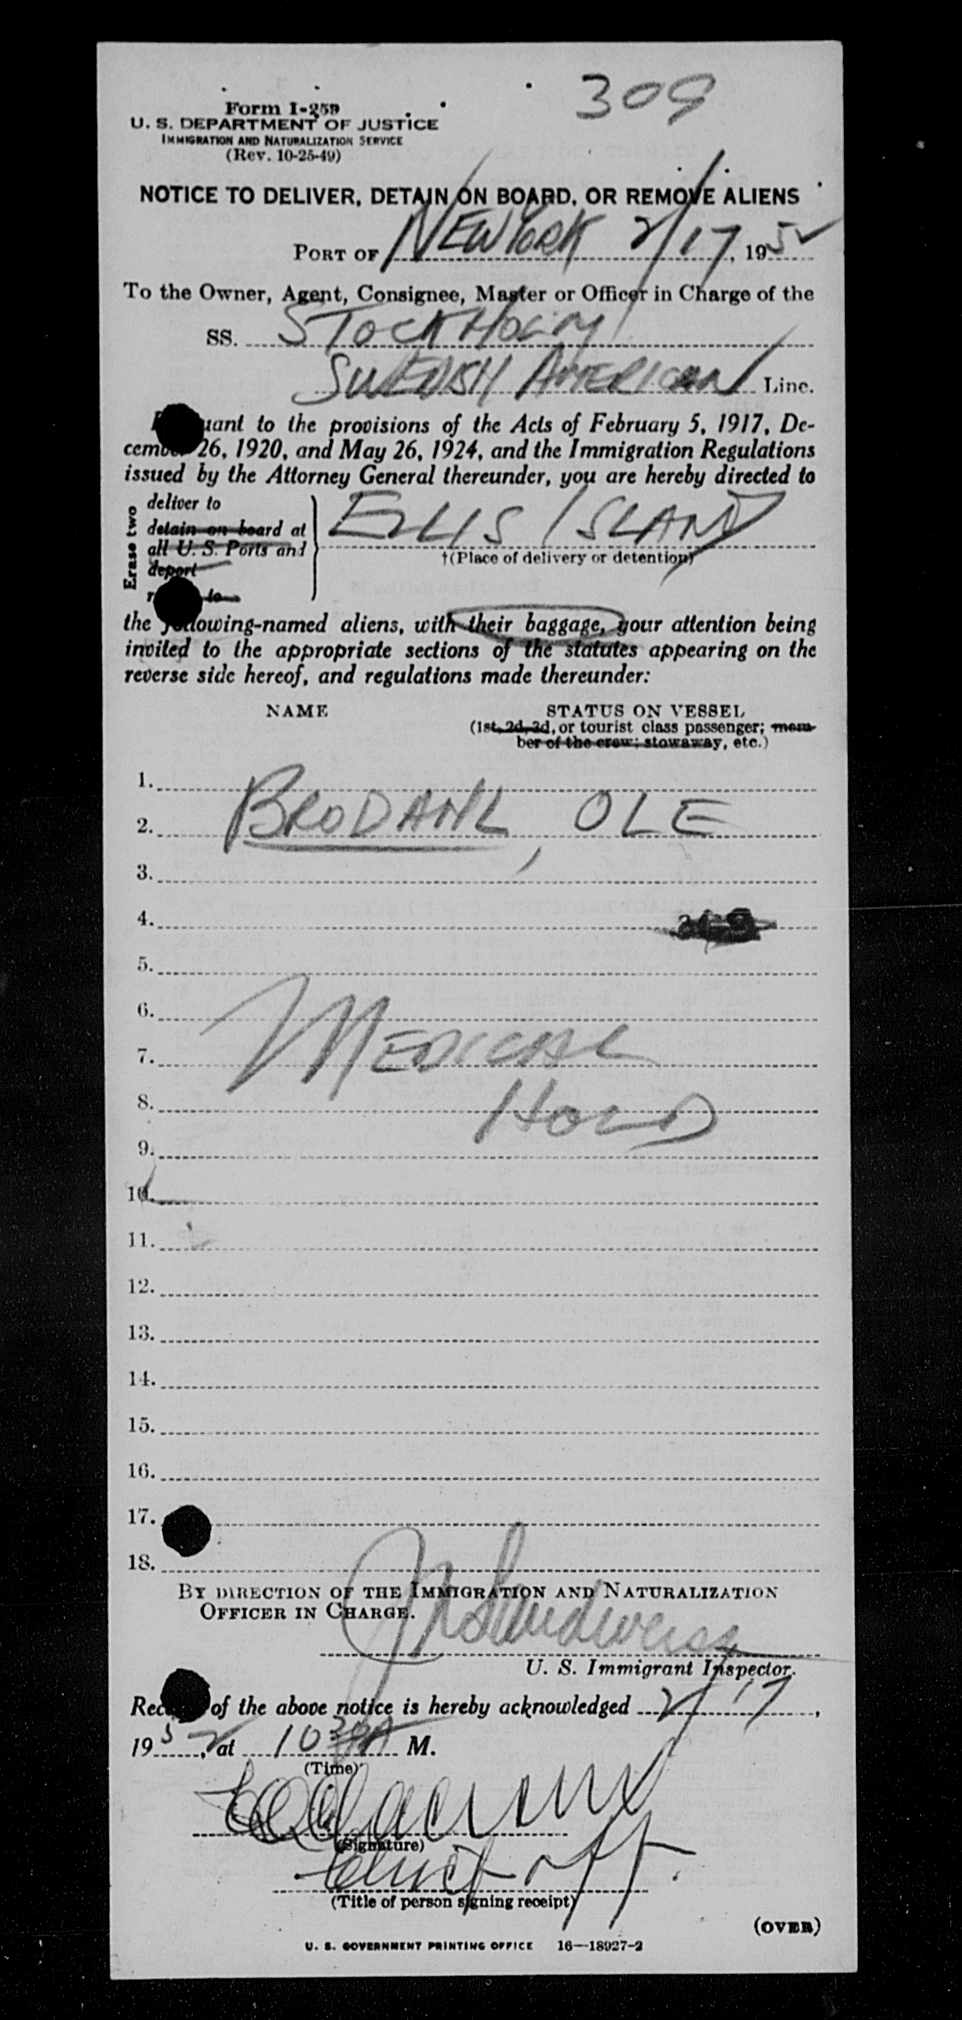 309
Form I-259
U. S. DEPARTMENT OF JUSTICE
IMMIGRATION AND NATURALIZATION SERVICE
(Rev. 10-25-49)
NOTICE TO DELIVER, DETAIN ON BOARD, OR REMOVE ALIENS
PORT OF NEW YORK 2/17, 1952
To the Owner, Agent, Consignee, Master or Officer in Charge of the
SS. STOCKHOLM
SWEDISH AMERICAN Line.
uant to the provisions of the Acts of February 5, 1917, De-
cember 26, 1920, and May 26, 1924, and the Immigration Regulations
issued by the Attorney General thereunder, you are hereby directed to
Erase two
deliver to
detain on board at
all U. S. Ports and
deport
to
ELLIS ISLAND
†(Place of delivery or detention)
the following-named aliens, with their baggage, your attention being
invited to the appropriate sections of the statutes appearing on the
reverse side hereof, and regulations made thereunder:
NAME STATUS ON VESSEL
(1st, 2d, 3d, or tourist class passenger; mem-
ber of the crew; stowaway, etc.)
1.
2. BRODAHL, OLE
3.
4.
5.
6.
7. MEDICAL
8. HOLD
9.
10.
11.
12.
13.
14.
15.
16.
17.
18.
BY DIRECTION OF THE IMMIGRATION AND NATURALIZATION
OFFICER IN CHARGE.
U. S. Immigrant Inspector.
Rec of the above notice is hereby acknowledged 2/17,
1952, at 10 30 A M.
(Time)
(Signature)
Chief Off.
(Title of person signing receipt)
(OVER)
U. S. GOVERNMENT PRINTING OFFICE 16—18927-2